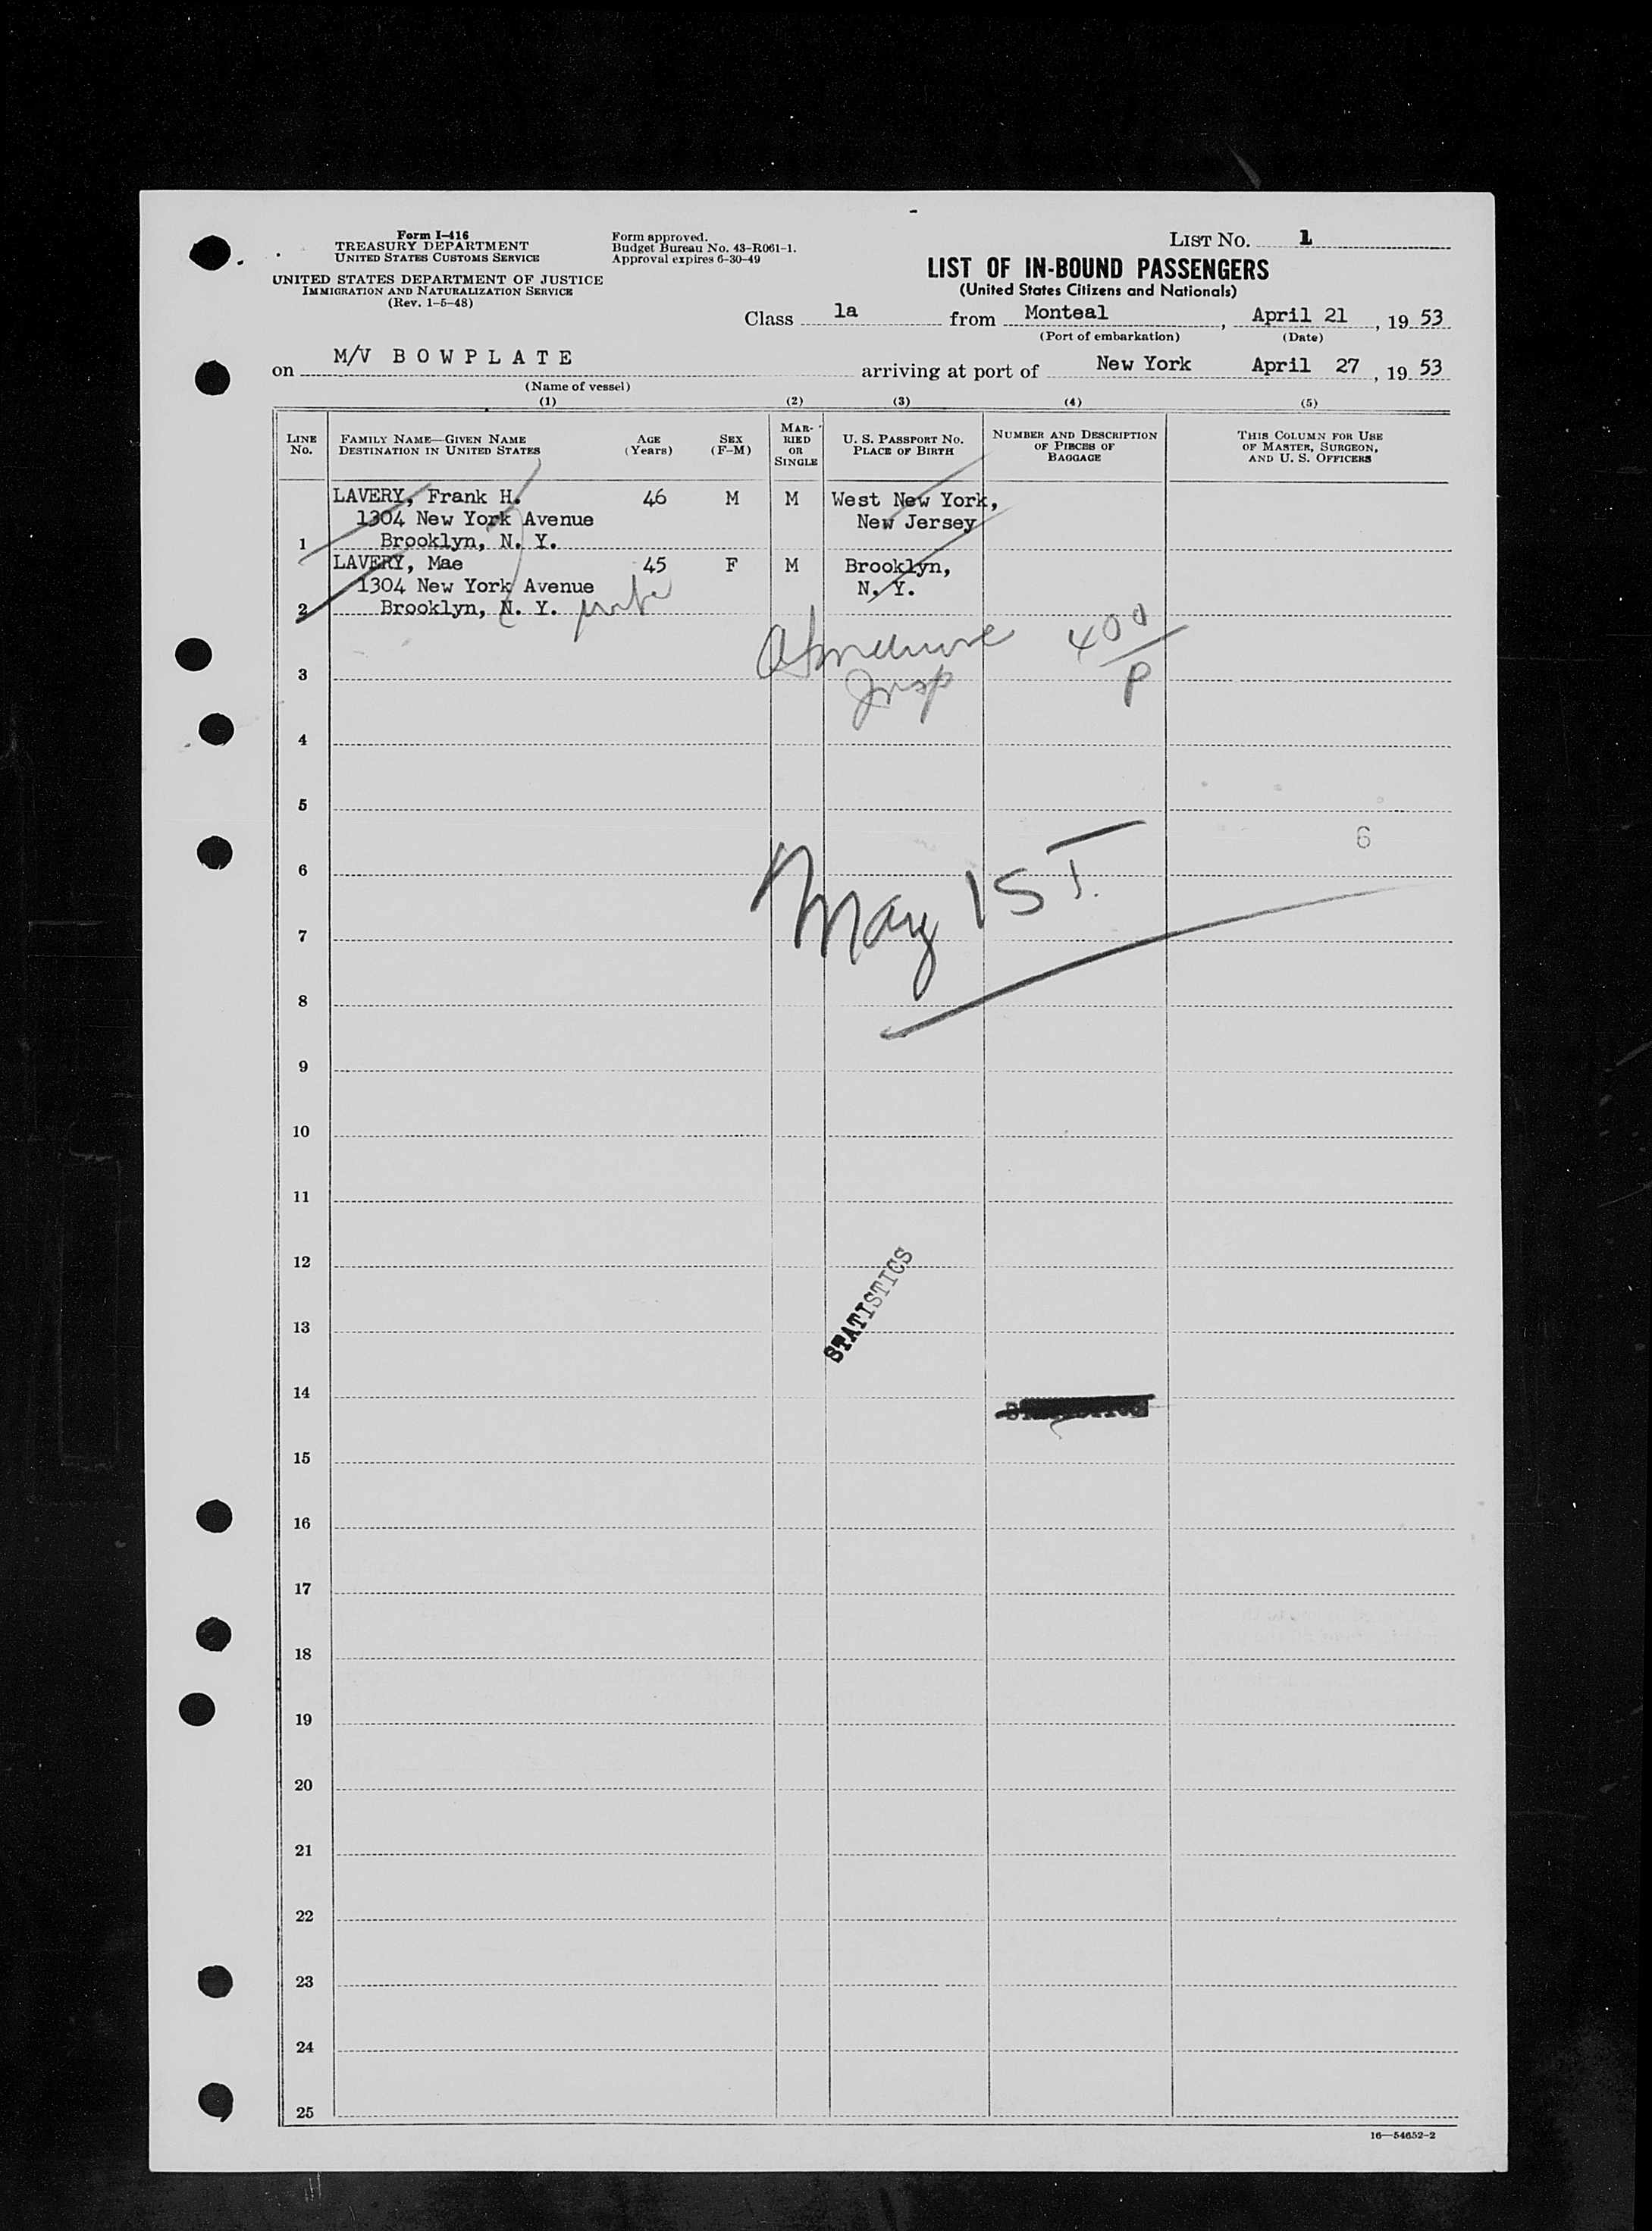 Form I-416
TREASURY DEPARTMENT
UNITED STATES CUSTOMS SERVICE
UNITED STATES DEPARTMENT OF JUSTICE
IMMIGRATION AND NATURALIZATION SERVICE
(Rev. 1-5-48)
Form approved.
Budget Bureau No. 43-R061-1.
Approval expires 6-30-49
LIST NO. 1
LIST OF IN-BOUND PASSENGERS
(United States Citizens and Nationals)
Class 1a from Monteal, April 21, 19 53
(Port of embarkation) (Date)
on M/V BOWPLATE arriving at port of New York April 27, 19 53
(Name of vessel)
(1) (2) (3) (4) (5)
LINE No.
FAMILY NAME—GIVEN NAME
DESTINATION IN UNITED STATES
AGE
(Years)
SEX
(F-M)
MAR-
RIED
OR
SINGLE
U. S. PASSPORT NO.
PLACE OF BIRTH
NUMBER AND DESCRIPTION
OF PIECES OF
BAGGAGE
THIS COLUMN FOR USE
OF MASTER, SURGEON,
AND U. S. OFFICERS
LAVERY, Frank H. 46 M M West New York,
1304 New York Avenue New Jersey
1 Brooklyn, N. Y.
LAVERY, Mae 45 F M Brooklyn,
1304 New York Avenue N. Y.
2 Brooklyn, N. Y.
400
3 Insp P
4
5
6
6
May 1ST.
7
8
9
10
11
12
STATISTICS
13
14
15
16
17
18
19
20
21
22
23
24
25
16—54652-2